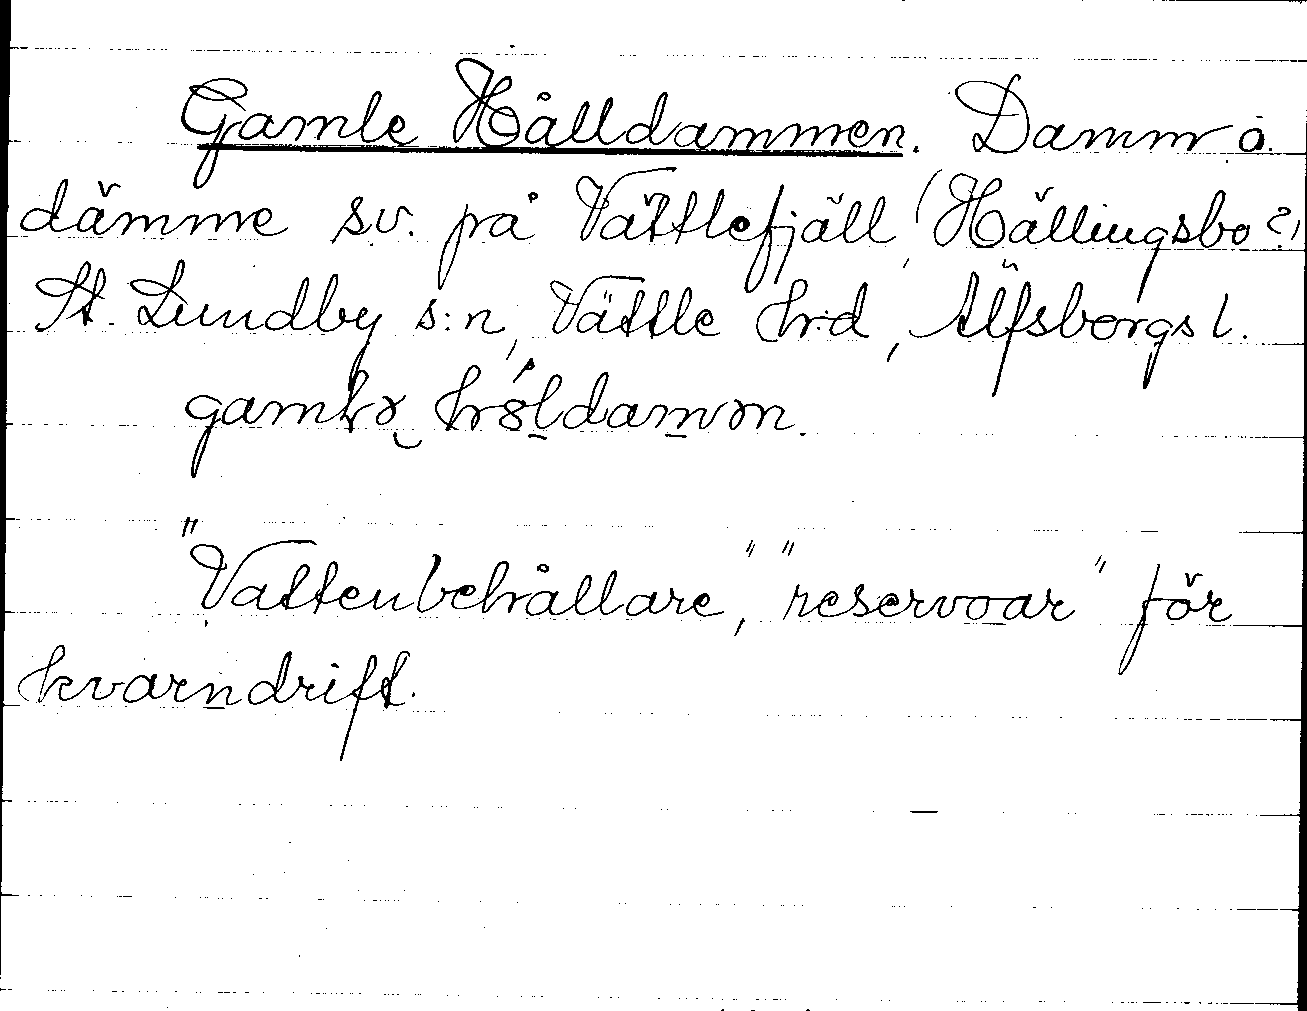 Gamle Hålldammen. Damm o.
dämme sv. på Vättlefjäll (Hällingsbo?)
St. Lundby s:n, Vättle hrd, Älfsborgs l.
"Vattenbehållare", "reservoar" för
kvarndrift.